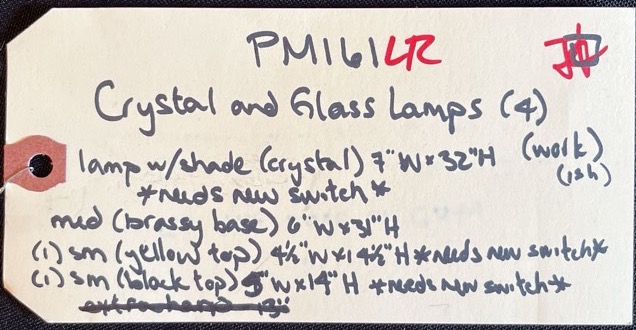 PM161LR
Crystal and Glass Lamps (4)
lamp w/shade (crystal) 7"W×32"H (work)
(ish)
*needs new switch*
med (brassy base) 6"W×31"H
(1) sm (yellow top) 4½"W×14½"H *needs new switch*
(1) sm (black top) 5"W×14"H *needs new switch*